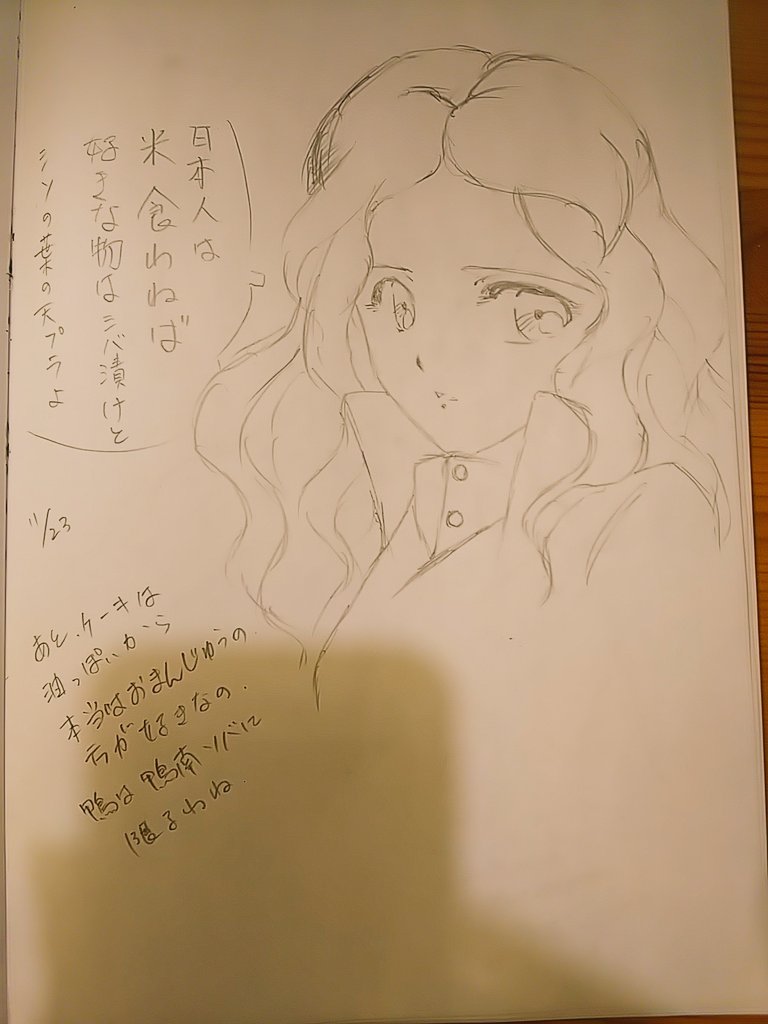 日本人は
米食わねば
好きな物はシバ漬けと
シソの葉の天プラよ
11/23
あと、ケーキは
油っぽいから
本当はおまんじゅうの
方が好きなの.
鴨は鴨南ソバに
限るわね.